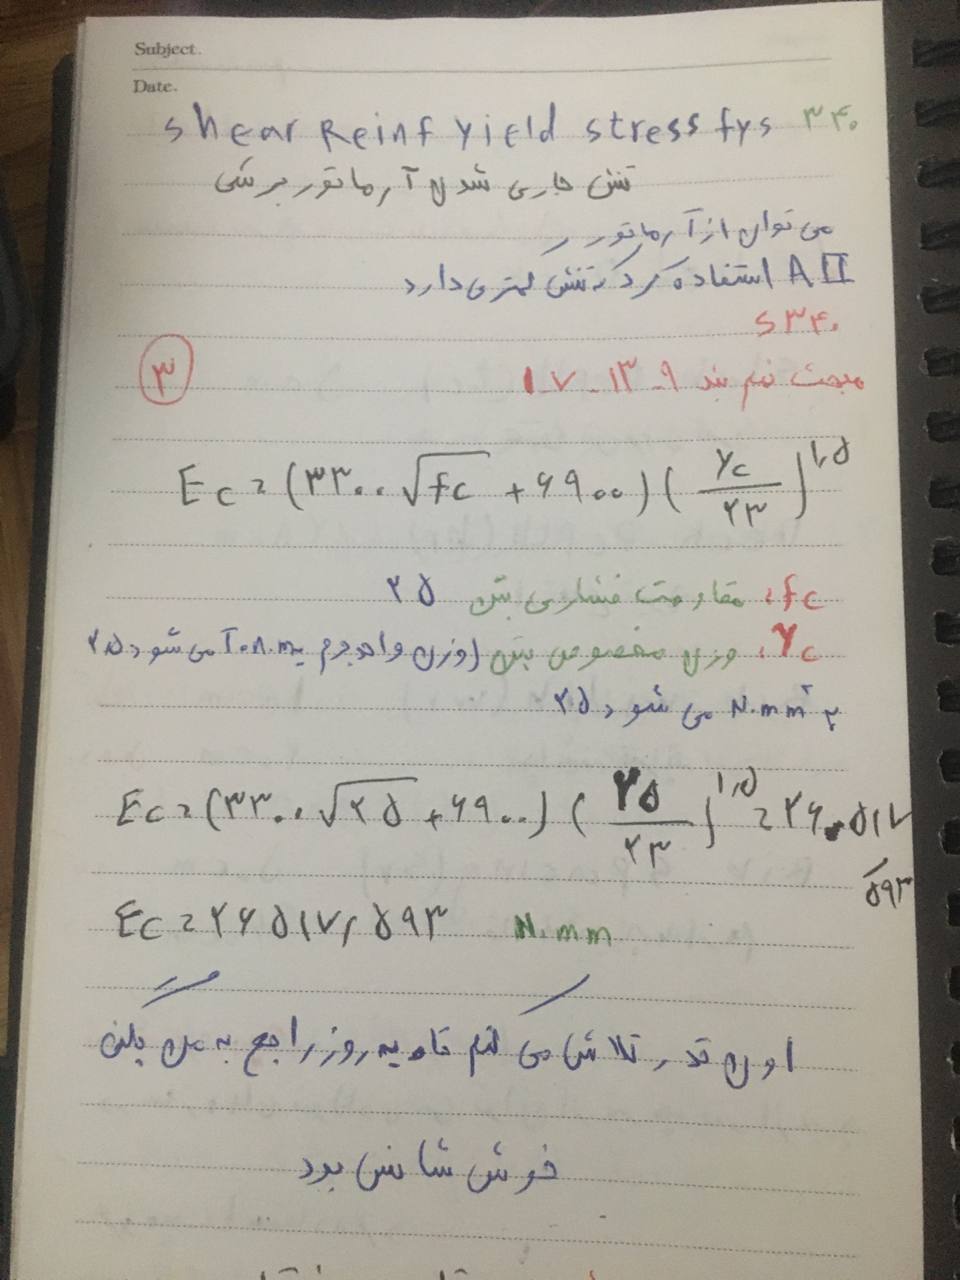 Subject.
Date.
Shear Reinf yield stress fys ۳۴۰
تنش جاری شدن آرماتور برشی
می توان از آرماتور
AII استفاده کرد که تنش کمتری دارد
S۳۴۰
مبحث نهم بند ۹-۱۳-۷-۱
۳
Ec = (۳۳۰۰ √fc + ۶۹۰۰) (γc / ۲۳)^۱,۵
fc: مقاومت فشاری بتن ۲۵
γc: وزن مخصوص بتن (وزن واحد حجم می شود ۲۵
N.mm² می شود ۲۵
Ec = (۳۳۰۰ √۲۵ + ۶۹۰۰) (۲۵ / ۲۳)^۱,۵ = ۲۶۵۱۷
/۵۹۳
Ec = ۲۶۵۱۷,۵۹۳ N.mm
اون قدر تلاش می کنم تا یه روز راجع به من بگن
خوش شانس بود